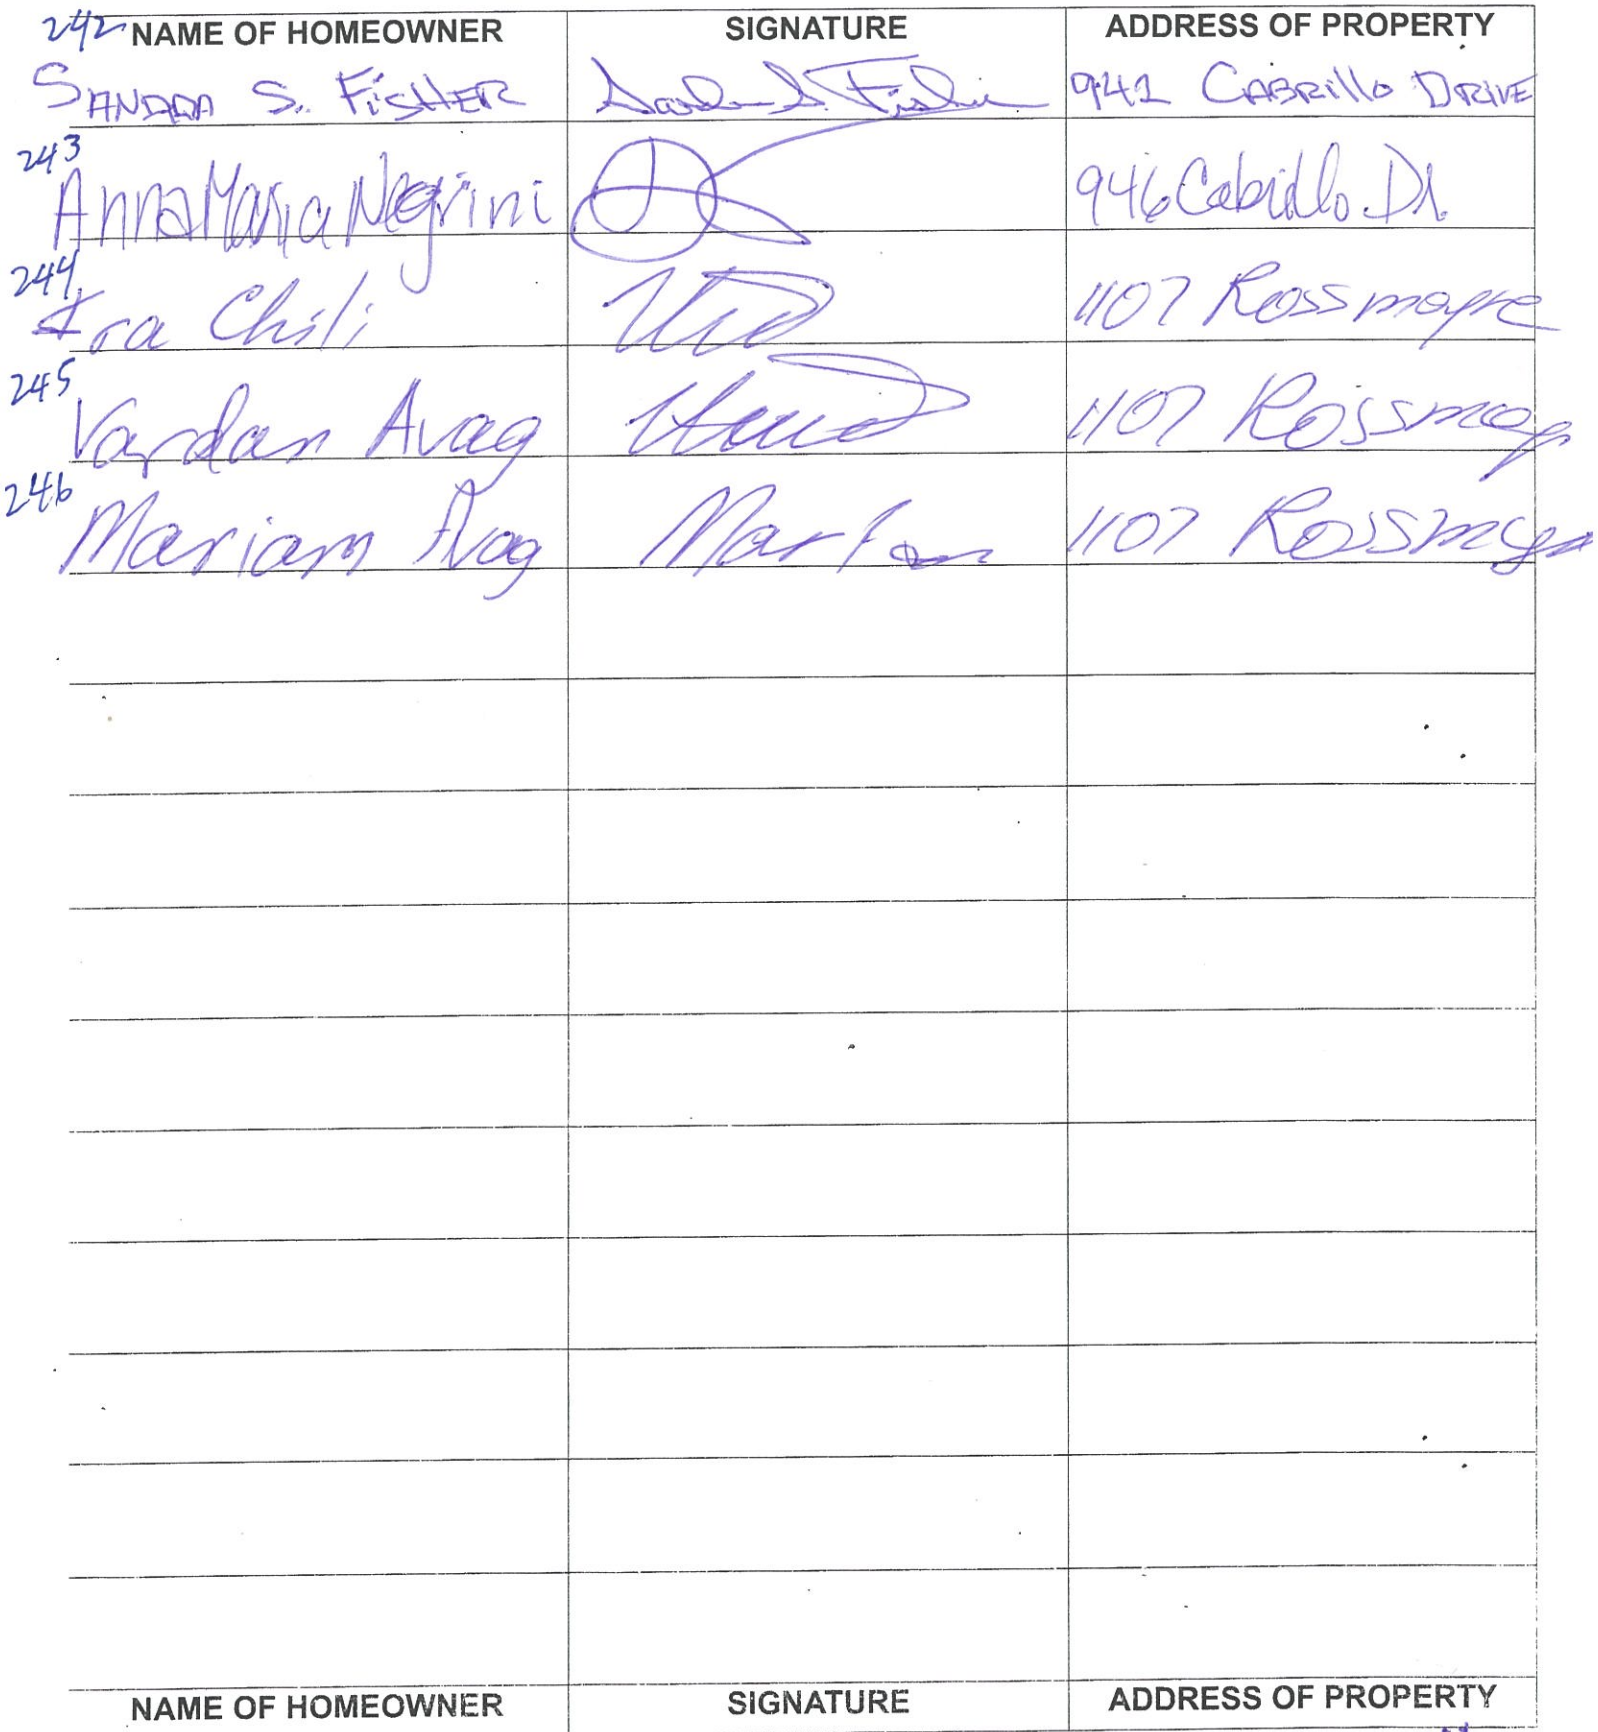 242 NAME OF HOMEOWNER SIGNATURE ADDRESS OF PROPERTY
SANDRA S. FISHER 941 CABRILLO DRIVE
243
AnnaMaria Negrini 946 Cabrillo Dr.
244
Ira Chili 1107 Rossmoyne
245
Vardan Avag 1107
246
Mariam Avag 1107
NAME OF HOMEOWNER SIGNATURE ADDRESS OF PROPERTY